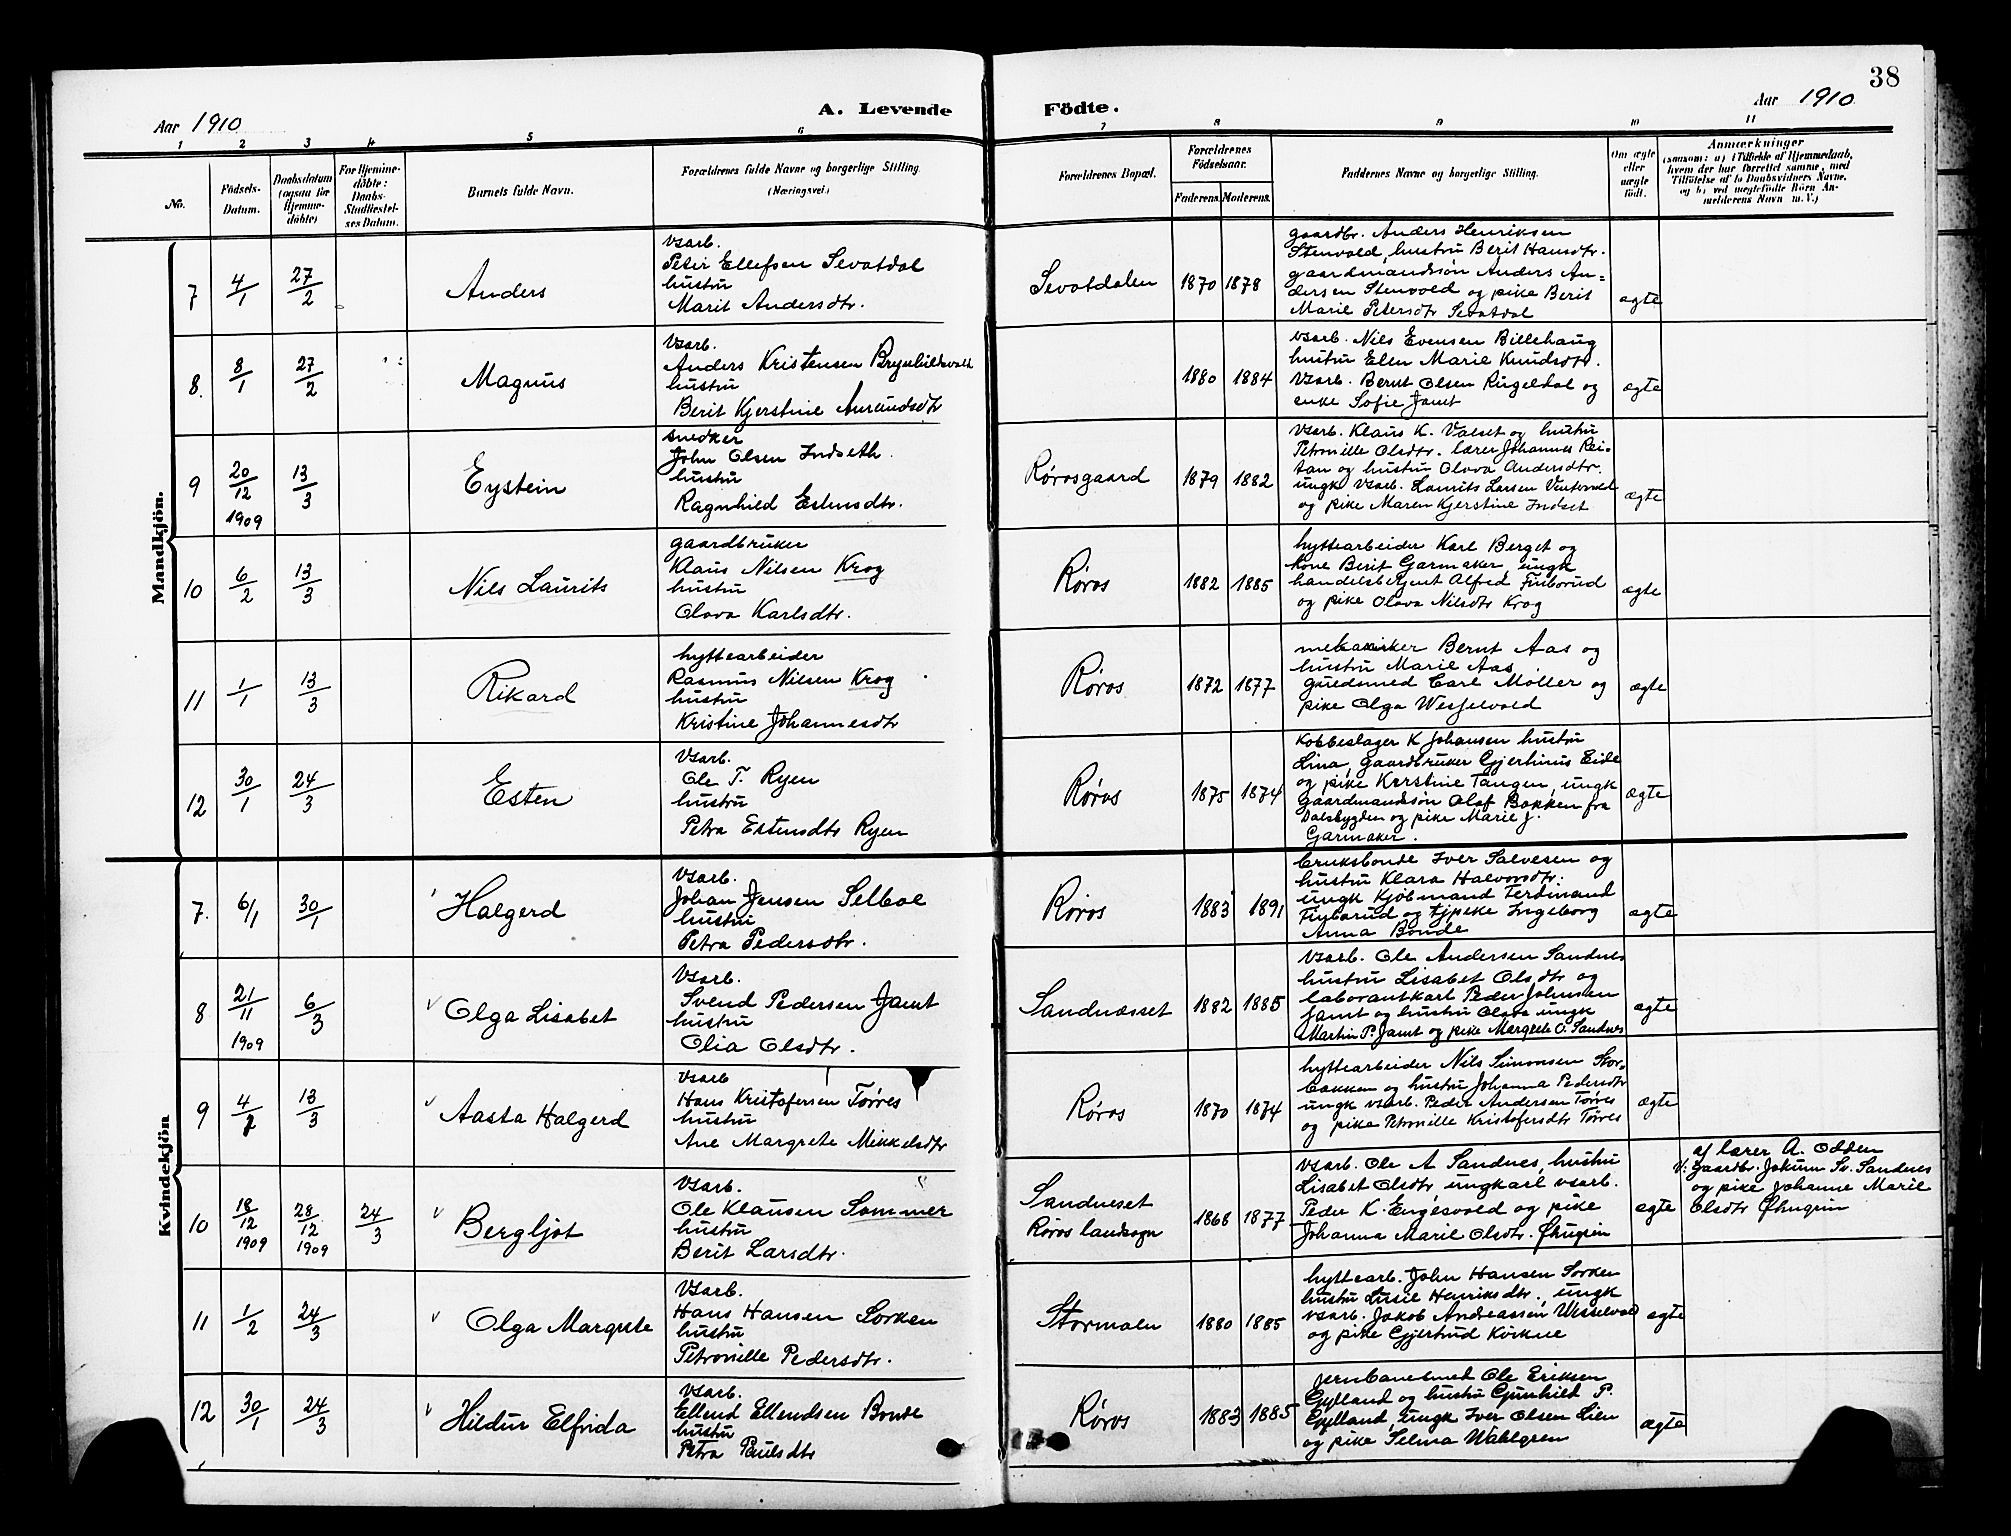 38
Aar 1910
A. Levende
Födte.
Aar 1910
1 2 3 4 5 6 7 8 9 10 11
No.
Födsels-Datum.
Daabsdatum (ogsaa for Hjemmedöbte)
For Hjemmedöbte: Daabs-Stadfæstelses Datum.
Barnets fulde Navn.
Forældrenes fulde Navne og borgerlige Stilling (Næringsvei.)
Forældrenes Bopæl.
Forældrenes Födselsaar.
Faderens. Moderens.
Faddernes Navne og borgerlige Stilling.
Om ægte eller uægte födt.
Anmærkninger
(saasom: a) i Tilfælde af Hjemmedaab, hvem der har forrettet samme, med Tilföielse af to Daabsvidners Navne, og b) ved uægtefödte Börn Anmelderens Navn m. V.)
Mandkjön.
7 4/1 27/2 Anders
vsarb.
Peter Ellefsen Sevatdal
hustru
Marit Andersdtr.
Sevatdalen 1870 1878
gaardbr. Anders Henriksen
Stenvold, hustru Berit Hansdtr.
gaardmandssøn Anders An-
dersen Stenvold og pike Berit
Marie Petersdtr Sevatdal
ægte
8. 8/1 27/2 Magnus
Vsarb.
Anders Kristensen Brynhildsvold
hustru
Berit Kjerstine Amundsdtr
1880 1884
vsarb. Nils Evensen Billehaug
hustru Ellen Marie Knudsdtr.
Vsarb. Bernt Olsen Ringeldal og
enke Sofie Jamt
ægte
9 20/12 1909 13/3 Eystein
snedker
John Olsen Indseth.
hustru
Ragnhild Estensdtr.
Rørosgaard 1879 1882
vsarb. Klaus K. Valset og hustru
Petronille Olsdtr. lærer Johannes Rei-
tan og hustru Olava Andersdtr.
ungk vsarb. Laurits Larsen
og pike Maren Kjerstine Indset
ægte
10 6/2 13/3 Nils Laurits
gaardbruker
Klaus Nilsen Krog
hustru
Olava Karlsdtr.
Røros 1882 1885
hyttearbeider Karl Berget og
kone Berit Garmaker, ungk
handelsbetjent Alfred Finborud
og pike Olava Nilsdtr Krog
ægte
11 1/1 13/3 Rikard
hyttearbeider
Rasmus Nilsen Krog
hustru
Kristine Johannesdtr
Røros 1872 1877
mekaniker Bernt Aas og
hustru Marie Aas
guldsmed Carl Möller og
pike Olga Wesselvold
ægte
12 30/1 24/3 Esten
Vsarb.
Ole T. Ryen
hustru
Petra Estensdtr Ryen
Røros 1875 1874
Kobbeslager K Johansen hustru
Lina, gaardbruker Gjerhinus Eide
og pike Kerstine Tangen, ungk
gaardmandssøn Olaf Bakken fra
Dalsbygden og pike Marie J.
Garmaker.
ægte
Kvindekjön
7. 6/1 30/1 Halgerd
Vsarb.
Johan Jensen Selboe
hustru
Petra Pedersdtr.
Røros 1883 1891
bruksbonde Iver Salvesen og
hustru Klara Halvorsdtr.
ungk Kjøbmand Ferdinand
Finborud og tjpike Ingeborg
Anna Bonde
ægte
8 21/11 1909 6/3 Olga Lisabet
Vsarb.
Svend Pedersen Jamt
hustru
Olia Olsdtr.
Sandnæsset 1882 1885
Vsarb. Ole Andersen Sandnes
hustru Lisabet Olsdtr og
laborantkarl Peder Johnsen
Jamt og hustru Olava ungk
Martin P. Jamt og pike Margrete O. Sandnes
ægte
9 4/2 13/3 Aasta Halgerd
Vsarb
Hans Kristofersen Törres
hustru
Ane Margrete Mikkelsdtr
Røros 1870 1874
hyttearbeider Nils Simonsen Stor-
bakken og hustru Johanna Pedersdtr
ungk vsarb. Peder Andersen Törres
og pike Petronille Kristofersdtr Törres
ægte
10 18/12 1909 28/12 1909 24/3 Bergljot
Vsarb.
Ole Klausen Sommer
hustru
Berit Larsdtr.
Sandneset
Røros landsogn
1868 1877
Vsarb. Ole A Sandnes, hustru
Lisabet Olsdtr, ungkarl vsarb.
Peder K. Engesvold og pike
Johanna Marie Olsdtr.
ægte
af lærer A. Odden
V: gaardbr. Jokum Sv. Sandnes
og pike Johanne Marie
Olsdtr
11 1/2 24/3 Olga Margrete
Vsarb.
Hans Hansen Sorken
hustru
Petronille Pedersdtr.
Stormoen 1880 1885
hyttearb. John Hansen Sorken
hustru Lusie Henriksdtr, ungk
vsarb. Jakob Andreassen Wesselvold
og pike Gjertrud Kvikne
ægte
12 30/1 24/3 Hildur Elfrida
Vsarb.
Ellend Ellendsen Bonde
hustru
Petra Paulsdtr
Røros 1883 1885
Ole Eriksen
Gylland og hustru Gunhild P.
Gylland, ungk Iver Olsen Lien
og pike Selma Wahlgren
ægte